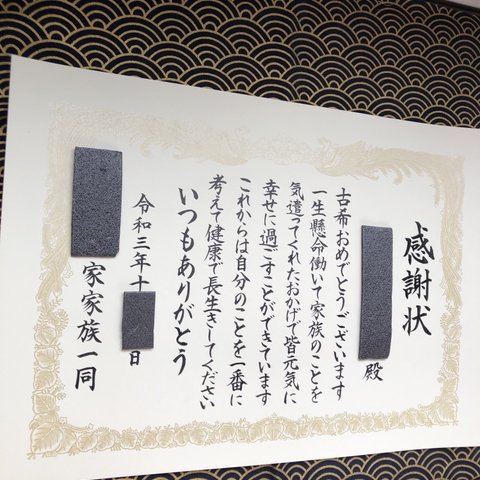 感謝状
殿
古希おめでとうございます
一生懸命働いて家族のことを
気遣ってくれたおかげで皆元気に
幸せに過ごすことができています
これからは自分のことを一番に
考えて健康で長生きしてください
いつもありがとう
令和三年十 日
家家族一同